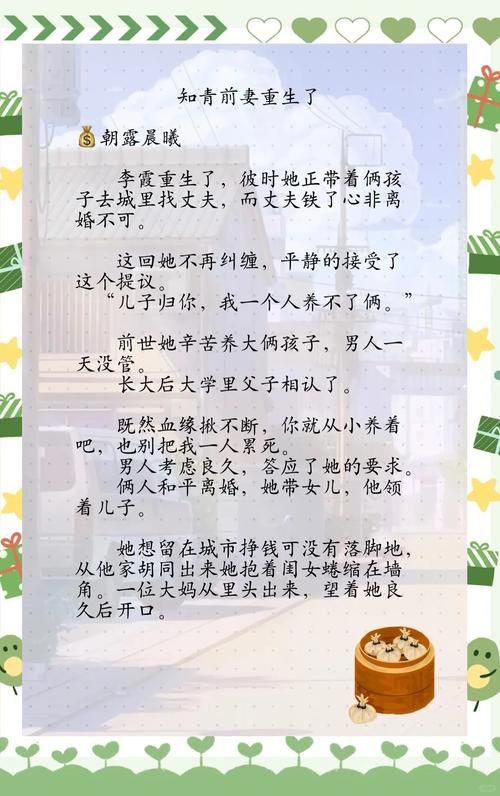 知青前妻重生了
朝露晨曦
李霞重生了，彼时她正带着俩孩
子去城里找丈夫，而丈夫铁了心非离
婚不可。
这回她不再纠缠，平静的接受了
这个提议。
“儿子归你，我一个人养不了俩。”
前世她辛苦养大俩孩子，男人一
天没管。
长大后大学里父子相认了。
既然血缘揪不断，你就从小养着
吧，也别把我一人累死。
男人考虑良久，答应了她的要求。
俩人和平离婚，她带女儿，他领
着儿子。
她想留在城市挣钱可没有落脚地，
从他家胡同出来她抱着闺女蜷缩在墙
角。一位大妈从里头出来，望着她良
久后开口。